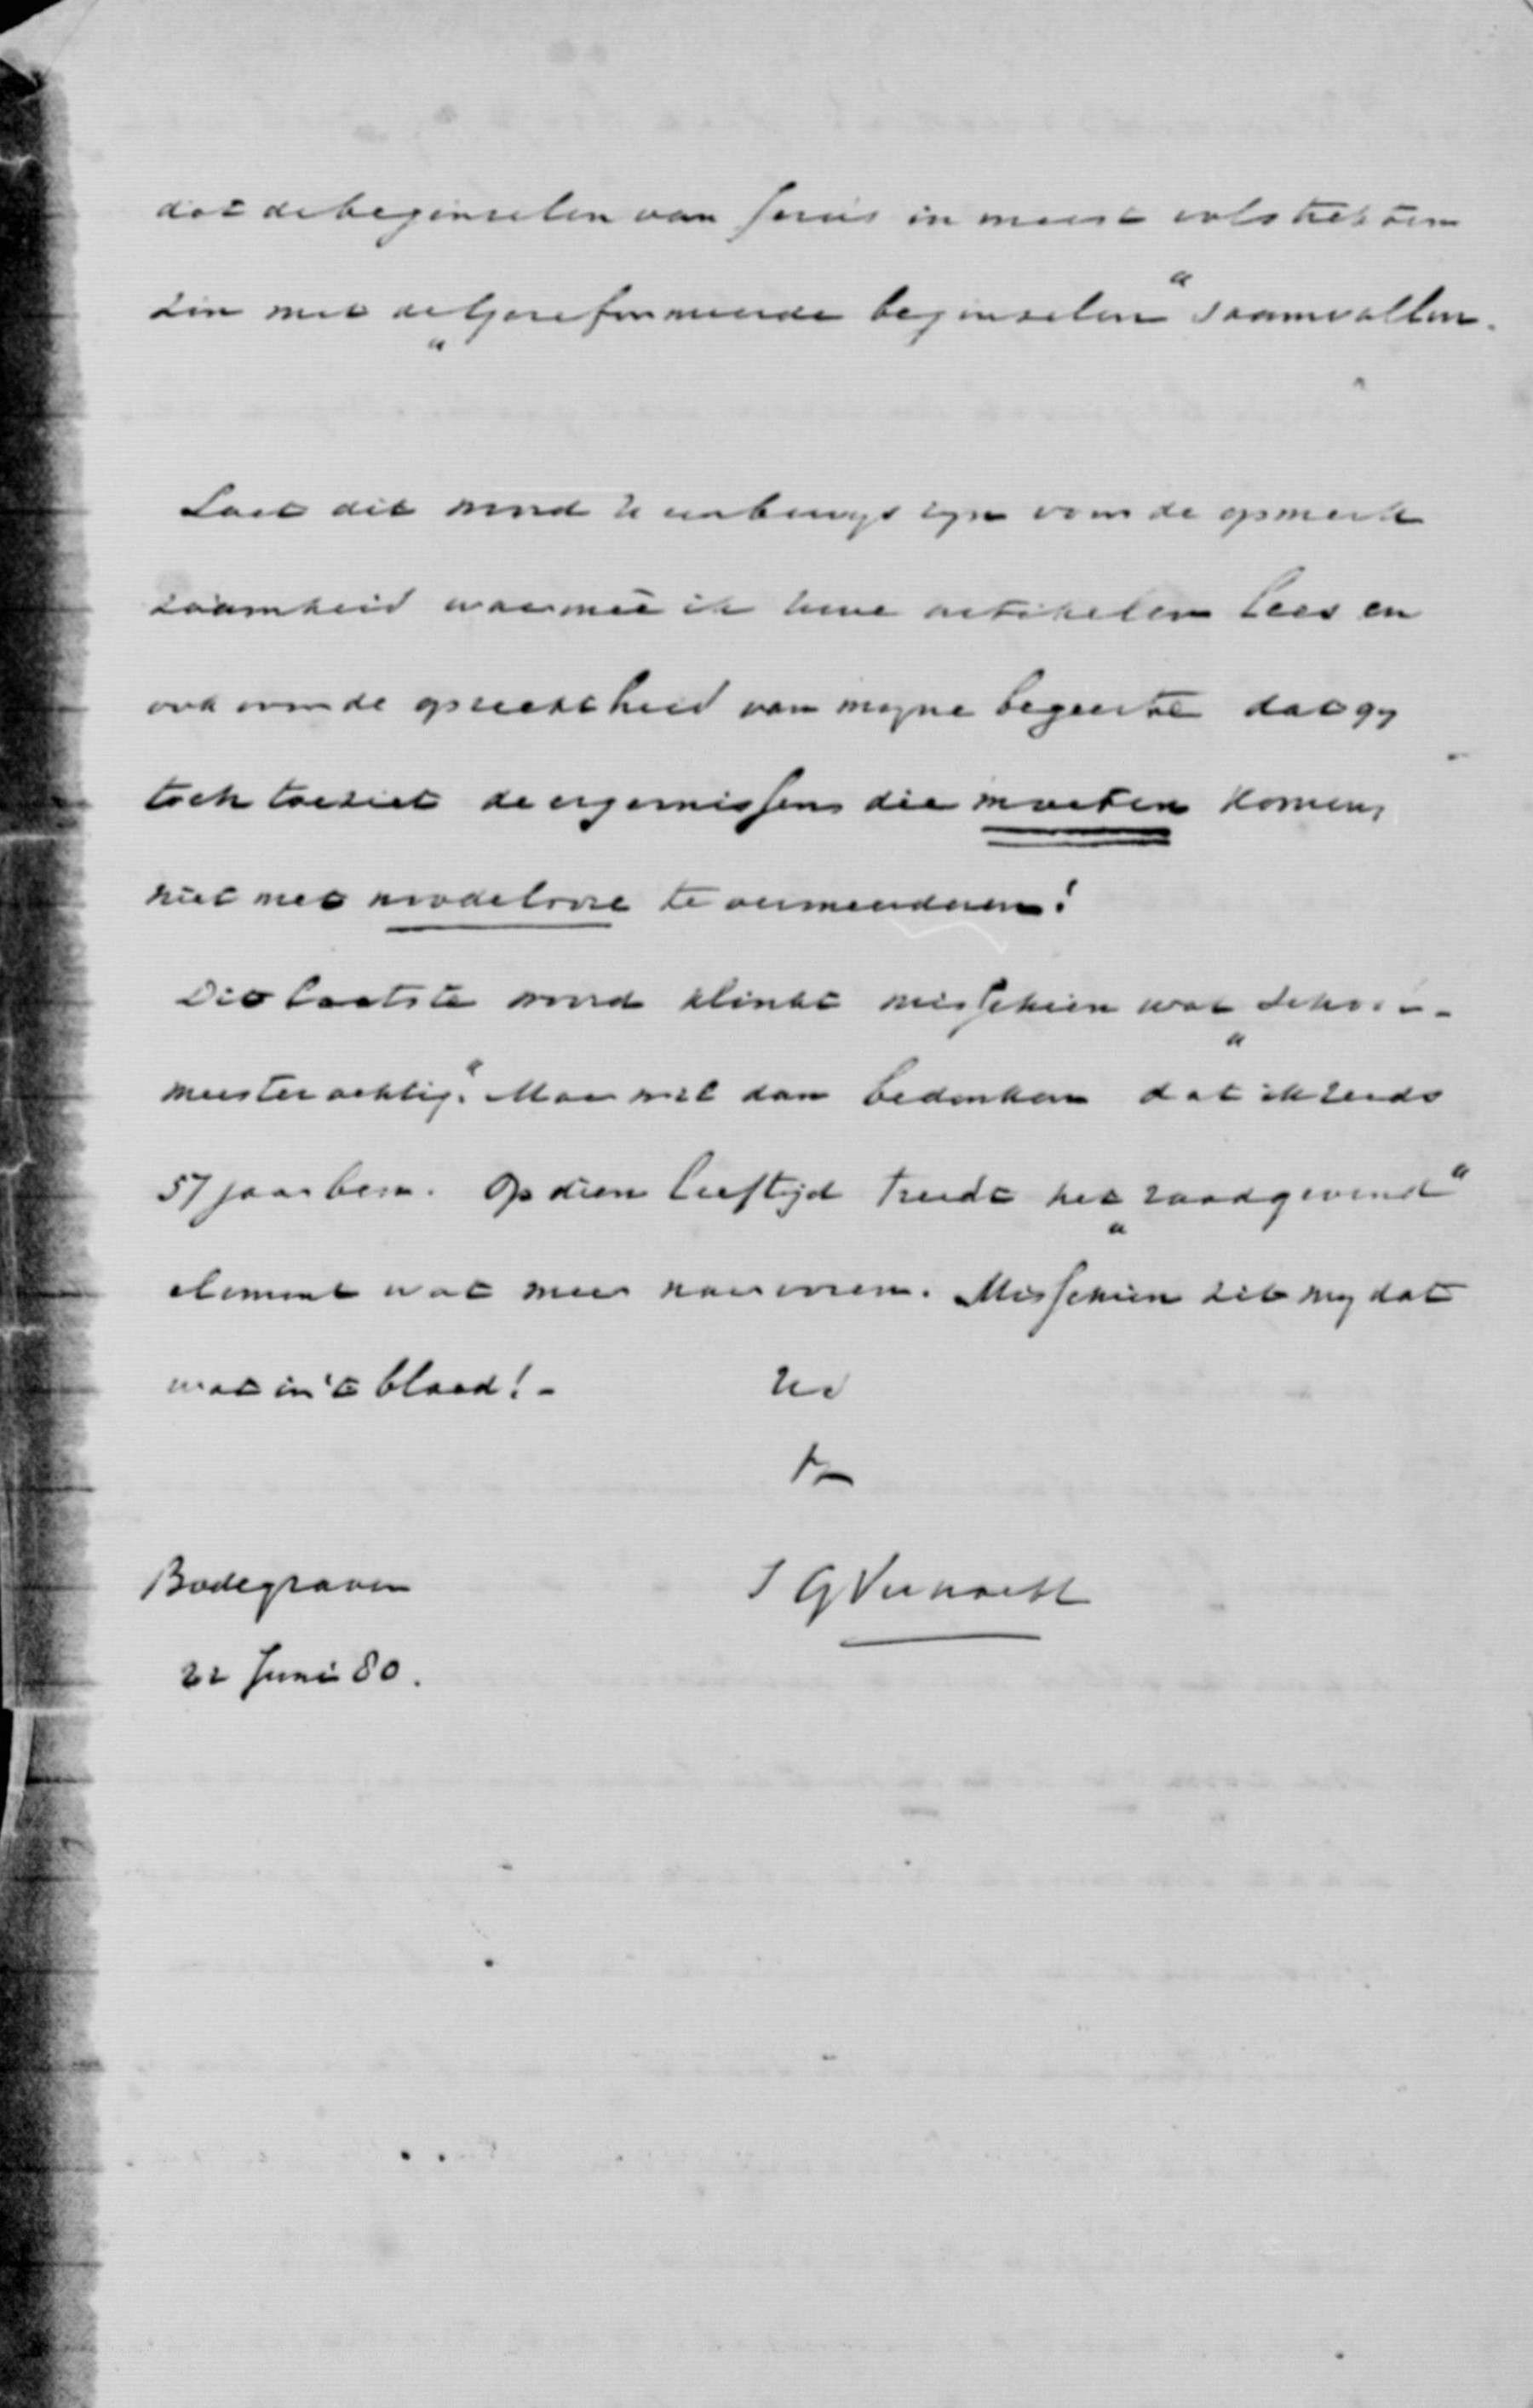 dat de beginselen van Jesus in meest volstrekten
zin met de „Gereformeerde beginselen“ saamvallen.
Laat dit woord U een bewys zyn van de opmerk
zaamheid waarmeê ik Uwe artikelen lees en
ook van de oprechtheid van mijne begeerte dat gy
toch toeziet de ergernissen die moeten komen,
niet met noodelooze te vermeerderen!
Dit laatste woord klinkt misschien wat „school-
meesterachtig“. Maar wil dan bedenken dat ik reeds
57 jaar ben. Op dien leeftijd treedt het „raadgevend“
element wat meer naar voren. Misschien zit my dat
wat in 't bloed! -
Bodegraven
22 Juni 80.